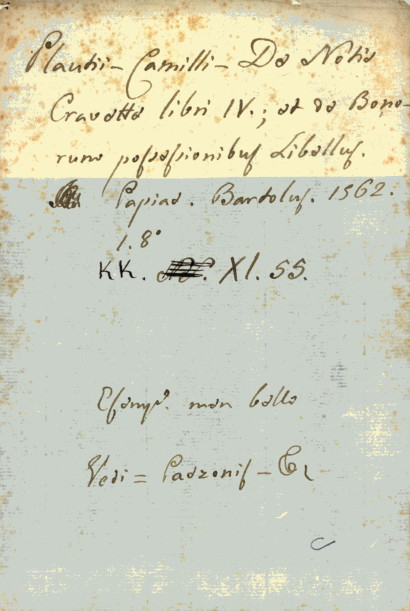 Plautii - Camilli - De Notis
Cravatta libri IV.; et de Bono-
rum possessionibus Libellus.
Papiae. Bartolus. 1562.
1. 8°
KK. XI. 55.
Esemp. non bello
Vedi =